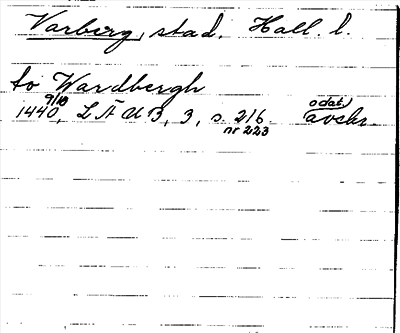 Varberg, stad. Hall. l.
to Wardbergh
1440 9/10, L Ä U B, 3, s. 216 odat. avskr.
nr 223